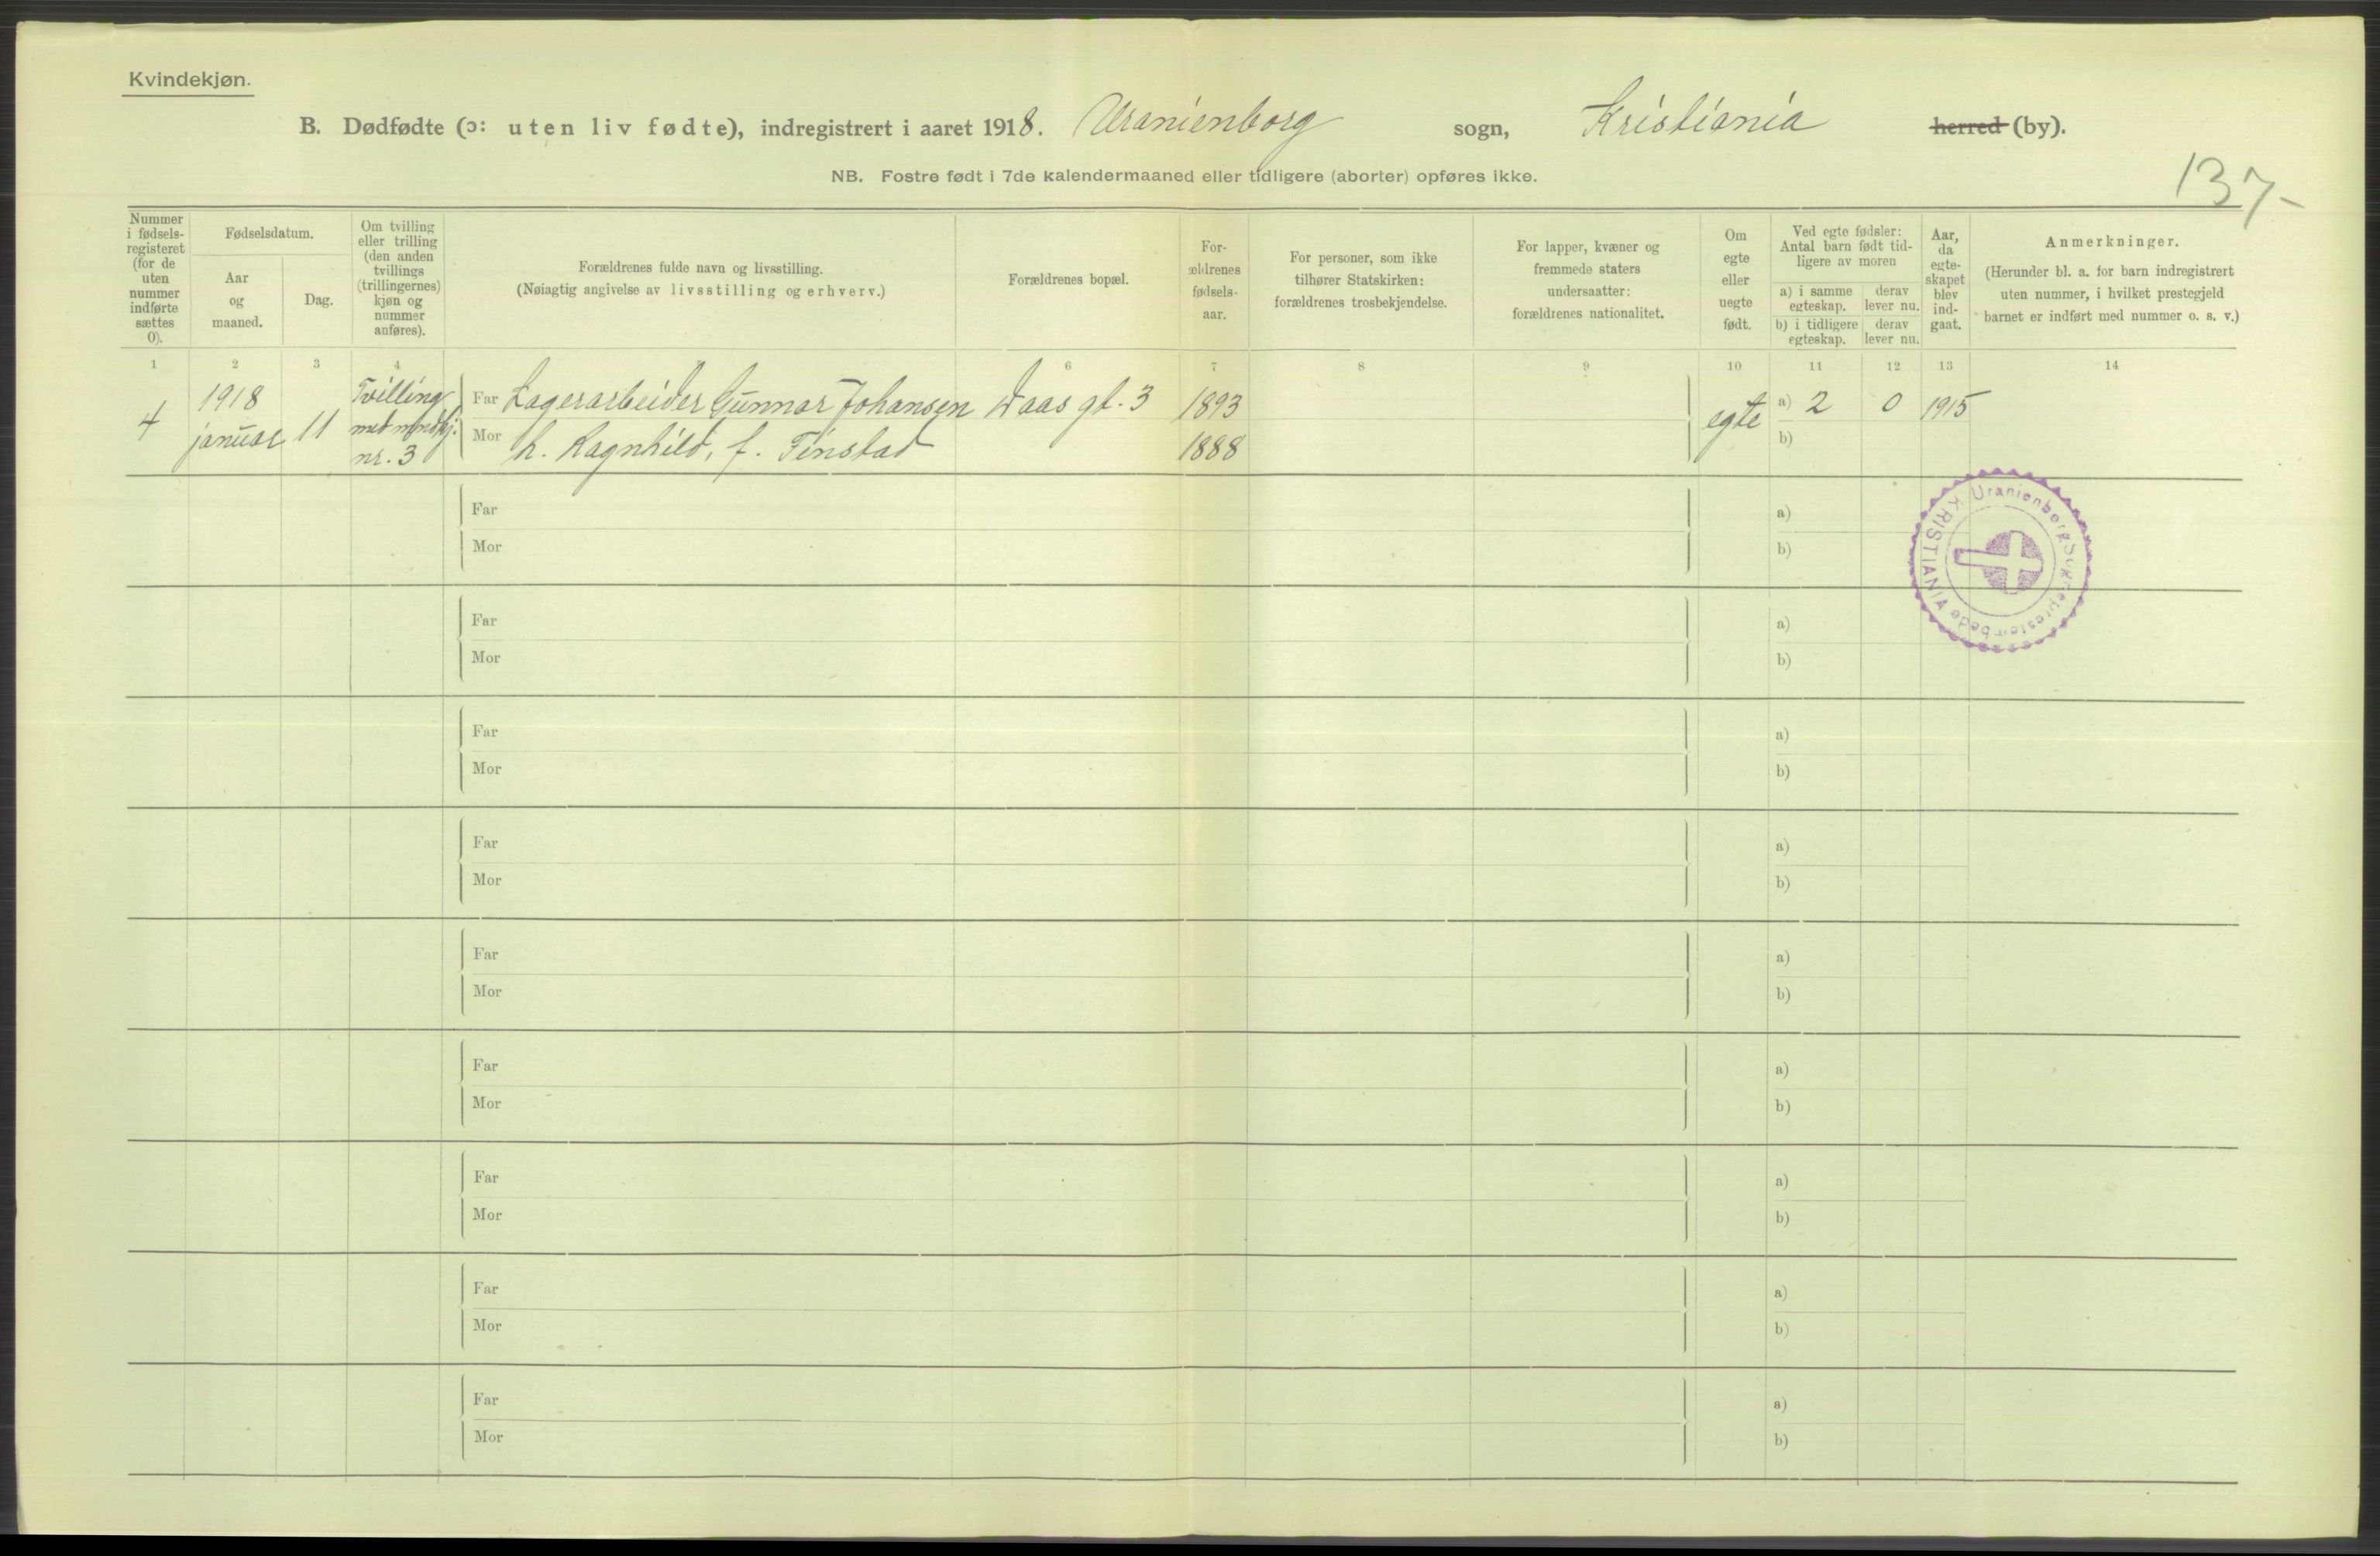 Kvindekjøn.
B. Dødfødte (ɔ: uten liv fødte), indregistrert i aaret 1918. Uranienborg sogn, Kristiania herred (by).
NB. Fostre født i 7de kalendermaaned eller tidligere (aborter) opføres ikke.
137-
Nummer i fødsels-registeret (for de uten nummer indførte sættes 0).
Fødselsdatum.
Aar og maaned.
Dag.
Om tvilling eller trilling (den anden tvillings (trillingernes) kjøn og nummer anføres).
Forældrenes fulde navn og livsstilling.
(Nøiagtig angivelse av livsstilling og erhverv.)
Forældrenes bopæl.
For-ældrenes fødsels-aar.
For personer, som ikke tilhører Statskirken: forældrenes trosbekjendelse.
For lapper, kvæner og fremmede staters undersaatter: forældrenes nationalitet.
Om egte eller uegte født.
Ved egte fødsler: Antal barn født tid-ligere av moren
a) i samme egteskap.
derav lever nu.
b) i tidligere egteskap.
derav lever nu.
Aar, da egte-skapet blev ind-gaat.
Anmerkninger.
(Herunder bl. a. for barn indregistrert uten nummer, i hvilket prestegjeld barnet er indført med nummer o. s. v.)
1 2 3 4 6 7 8 9 10 11 12 13 14
4 1918 januar 11 Tvilling med mndkj. nr. 3
Far Lagerarbeider Gunnar Johansen Daas gt. 3 1893 egte a) 2 0 1915
Mor h. Ragnhild, f. Finstad 1888 b)
Far a)
Mor b)
Uranienborg Sogneprestembede KRISTIANIA
Far a)
Mor b)
Far a)
Mor b)
Far a)
Mor b)
Far a)
Mor b)
Far a)
Mor b)
Far a)
Mor b)
Far a)
Mor b)
Far a)
Mor b)